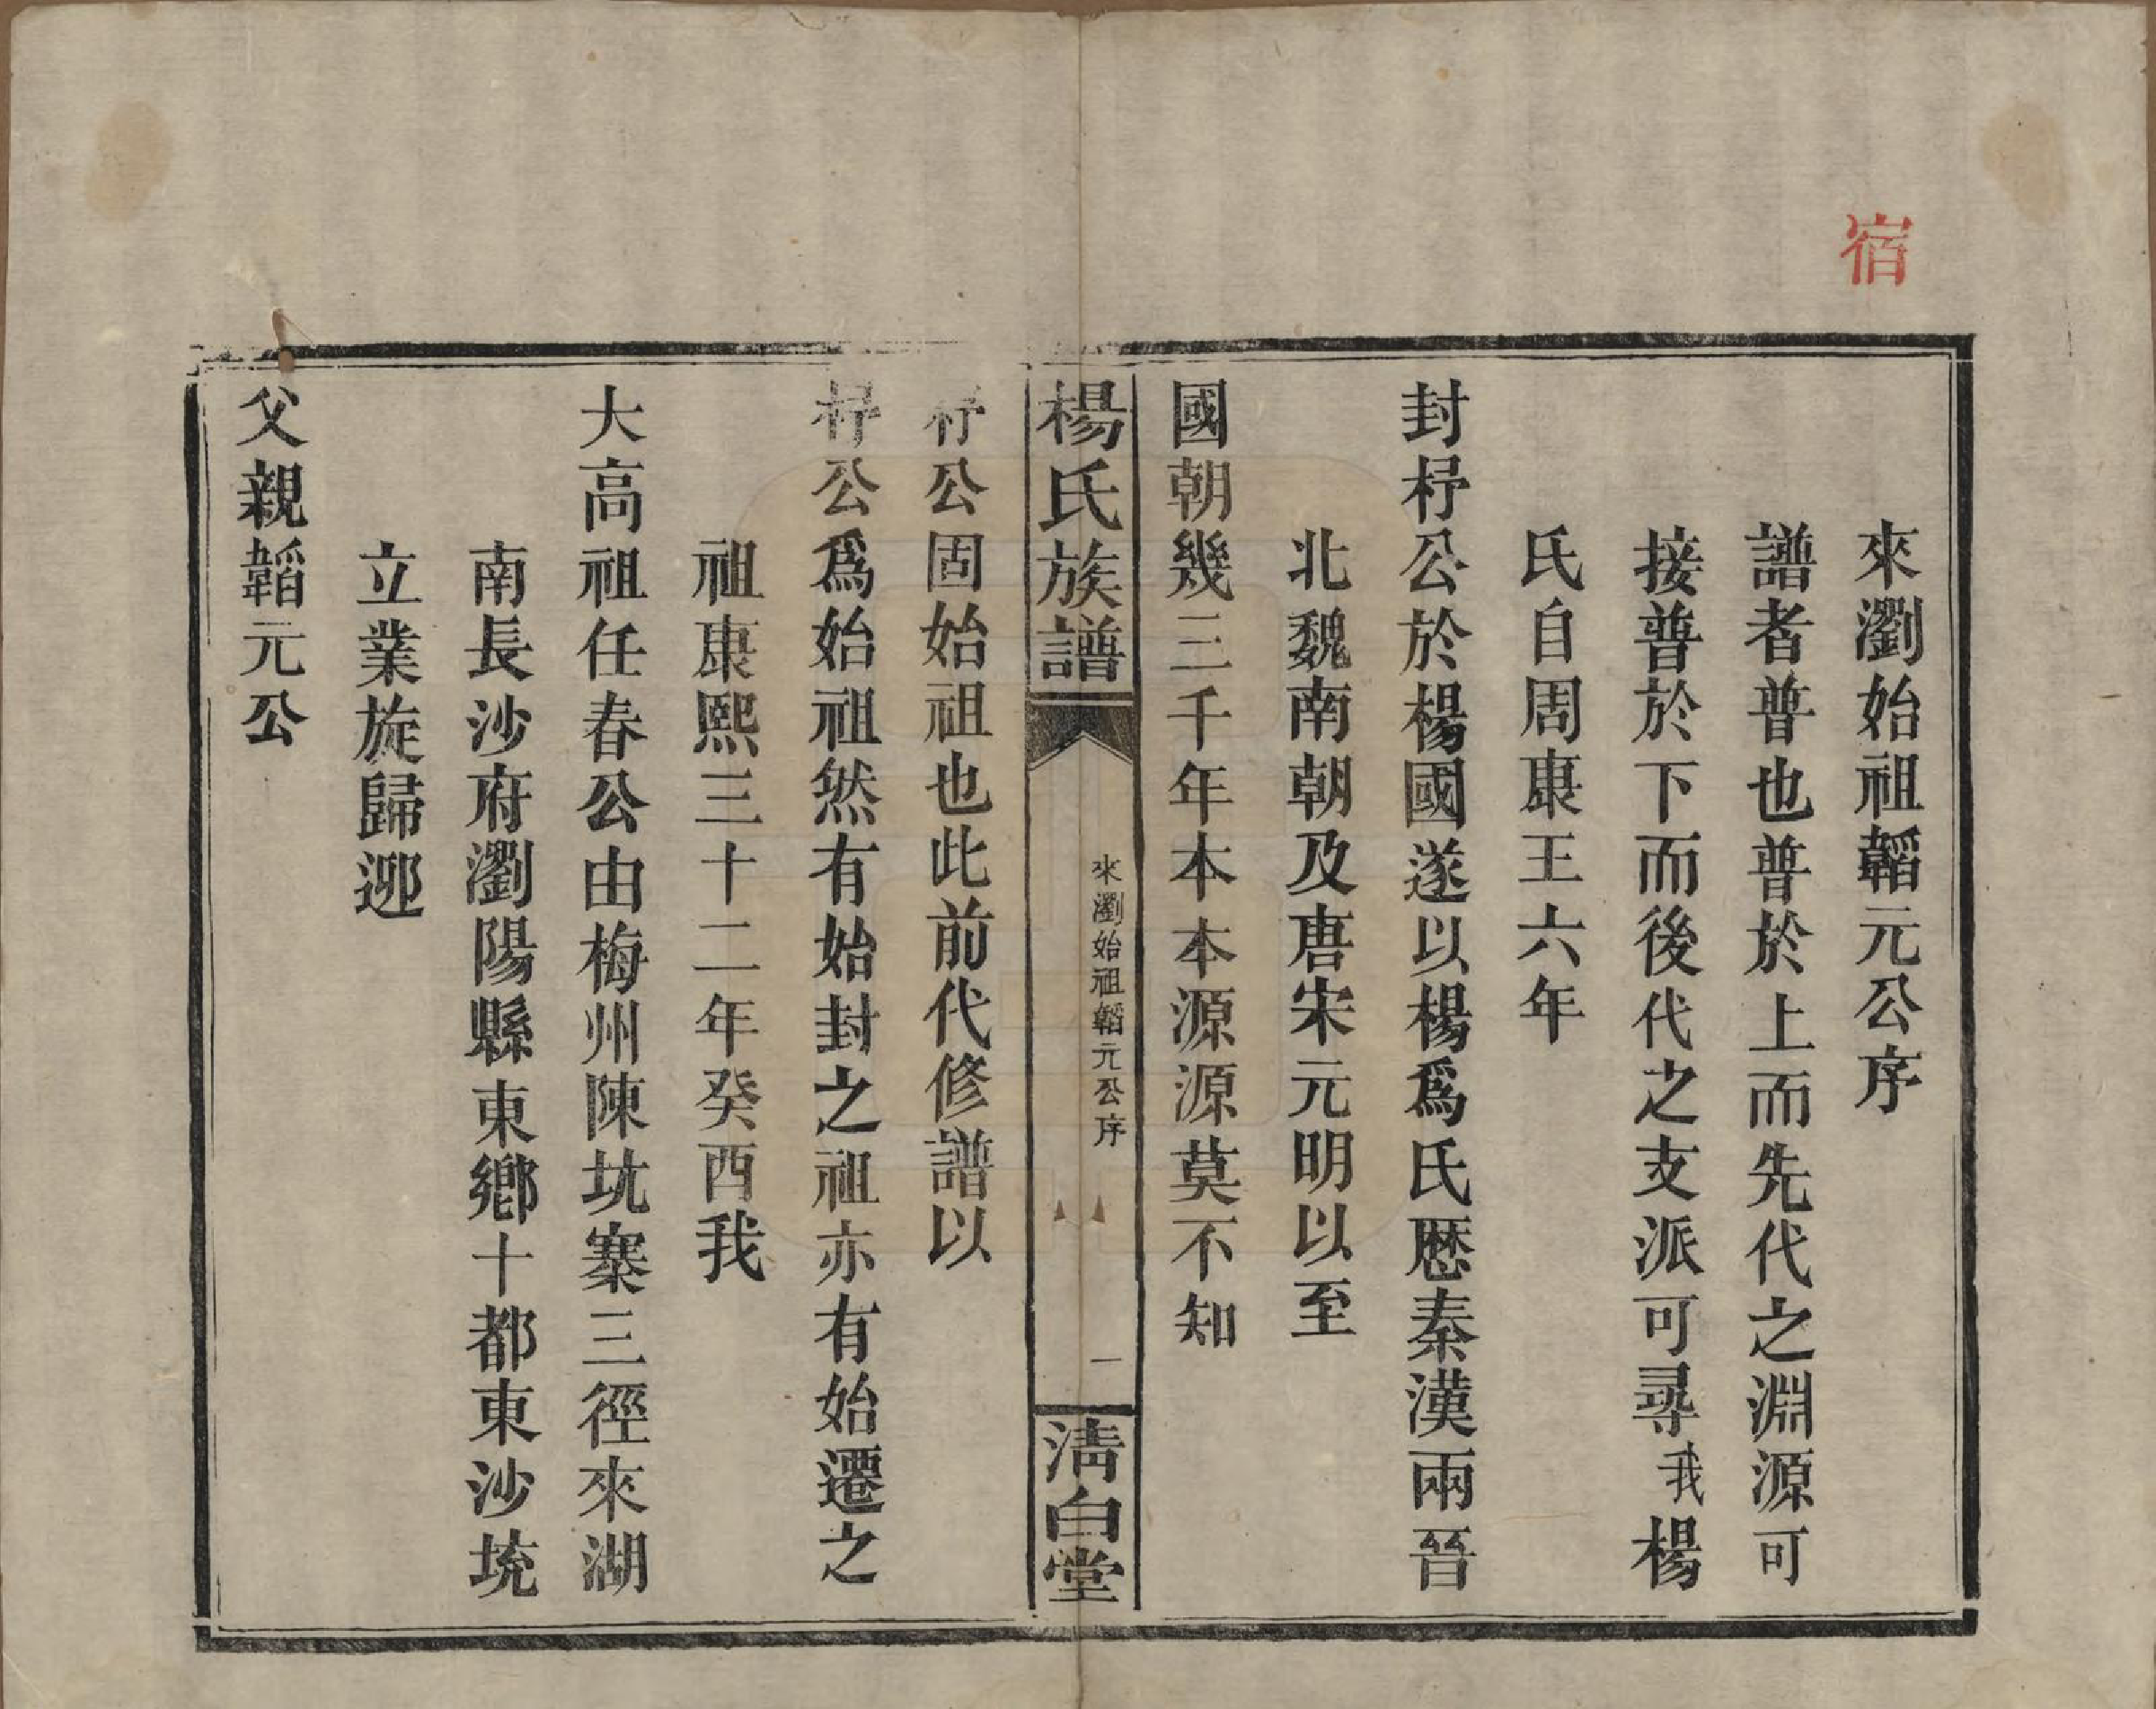 宿
來瀏始祖韜元公序
譜者普也普於上而先代之淵源可
接普於下而後代之支派可尋我楊
氏自周康王六年
封杼公於楊國遂以楊爲氏歷秦漢兩晉
北魏南朝及唐宋元明以至
國朝幾三千年本本源源莫不知
楊氏族譜
來瀏始祖韜元公序
一
清白堂
杼公固始祖也此前代修譜以
杼公爲始祖然有始封之祖亦有始遷之
祖康熙三十二年癸酉我
大高祖任春公由梅州陳坑寨三徑來湖
南長沙府瀏陽縣東鄉十都東沙坑
立業旋歸迎
父親韜元公